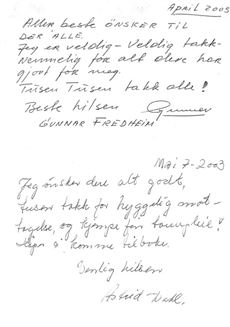 APRIL 2003
Aller beste ØNSKER TIL
DER ALLE.
Jeg er veldig - Veldig takk-
nemmelig for alt dere har
gjort for meg.
Tusen Tusen takk alle!
Beste hilsen Gunnar
GUNNAR FREDHEIM
Mai 7 - 2003
Jeg ønsker dere alt godt,
tusen takk for hyggelig mot-
tagelse, og kjempe fin
å komme tilbake.
Vennlig hilsen
Astrid Dahl.